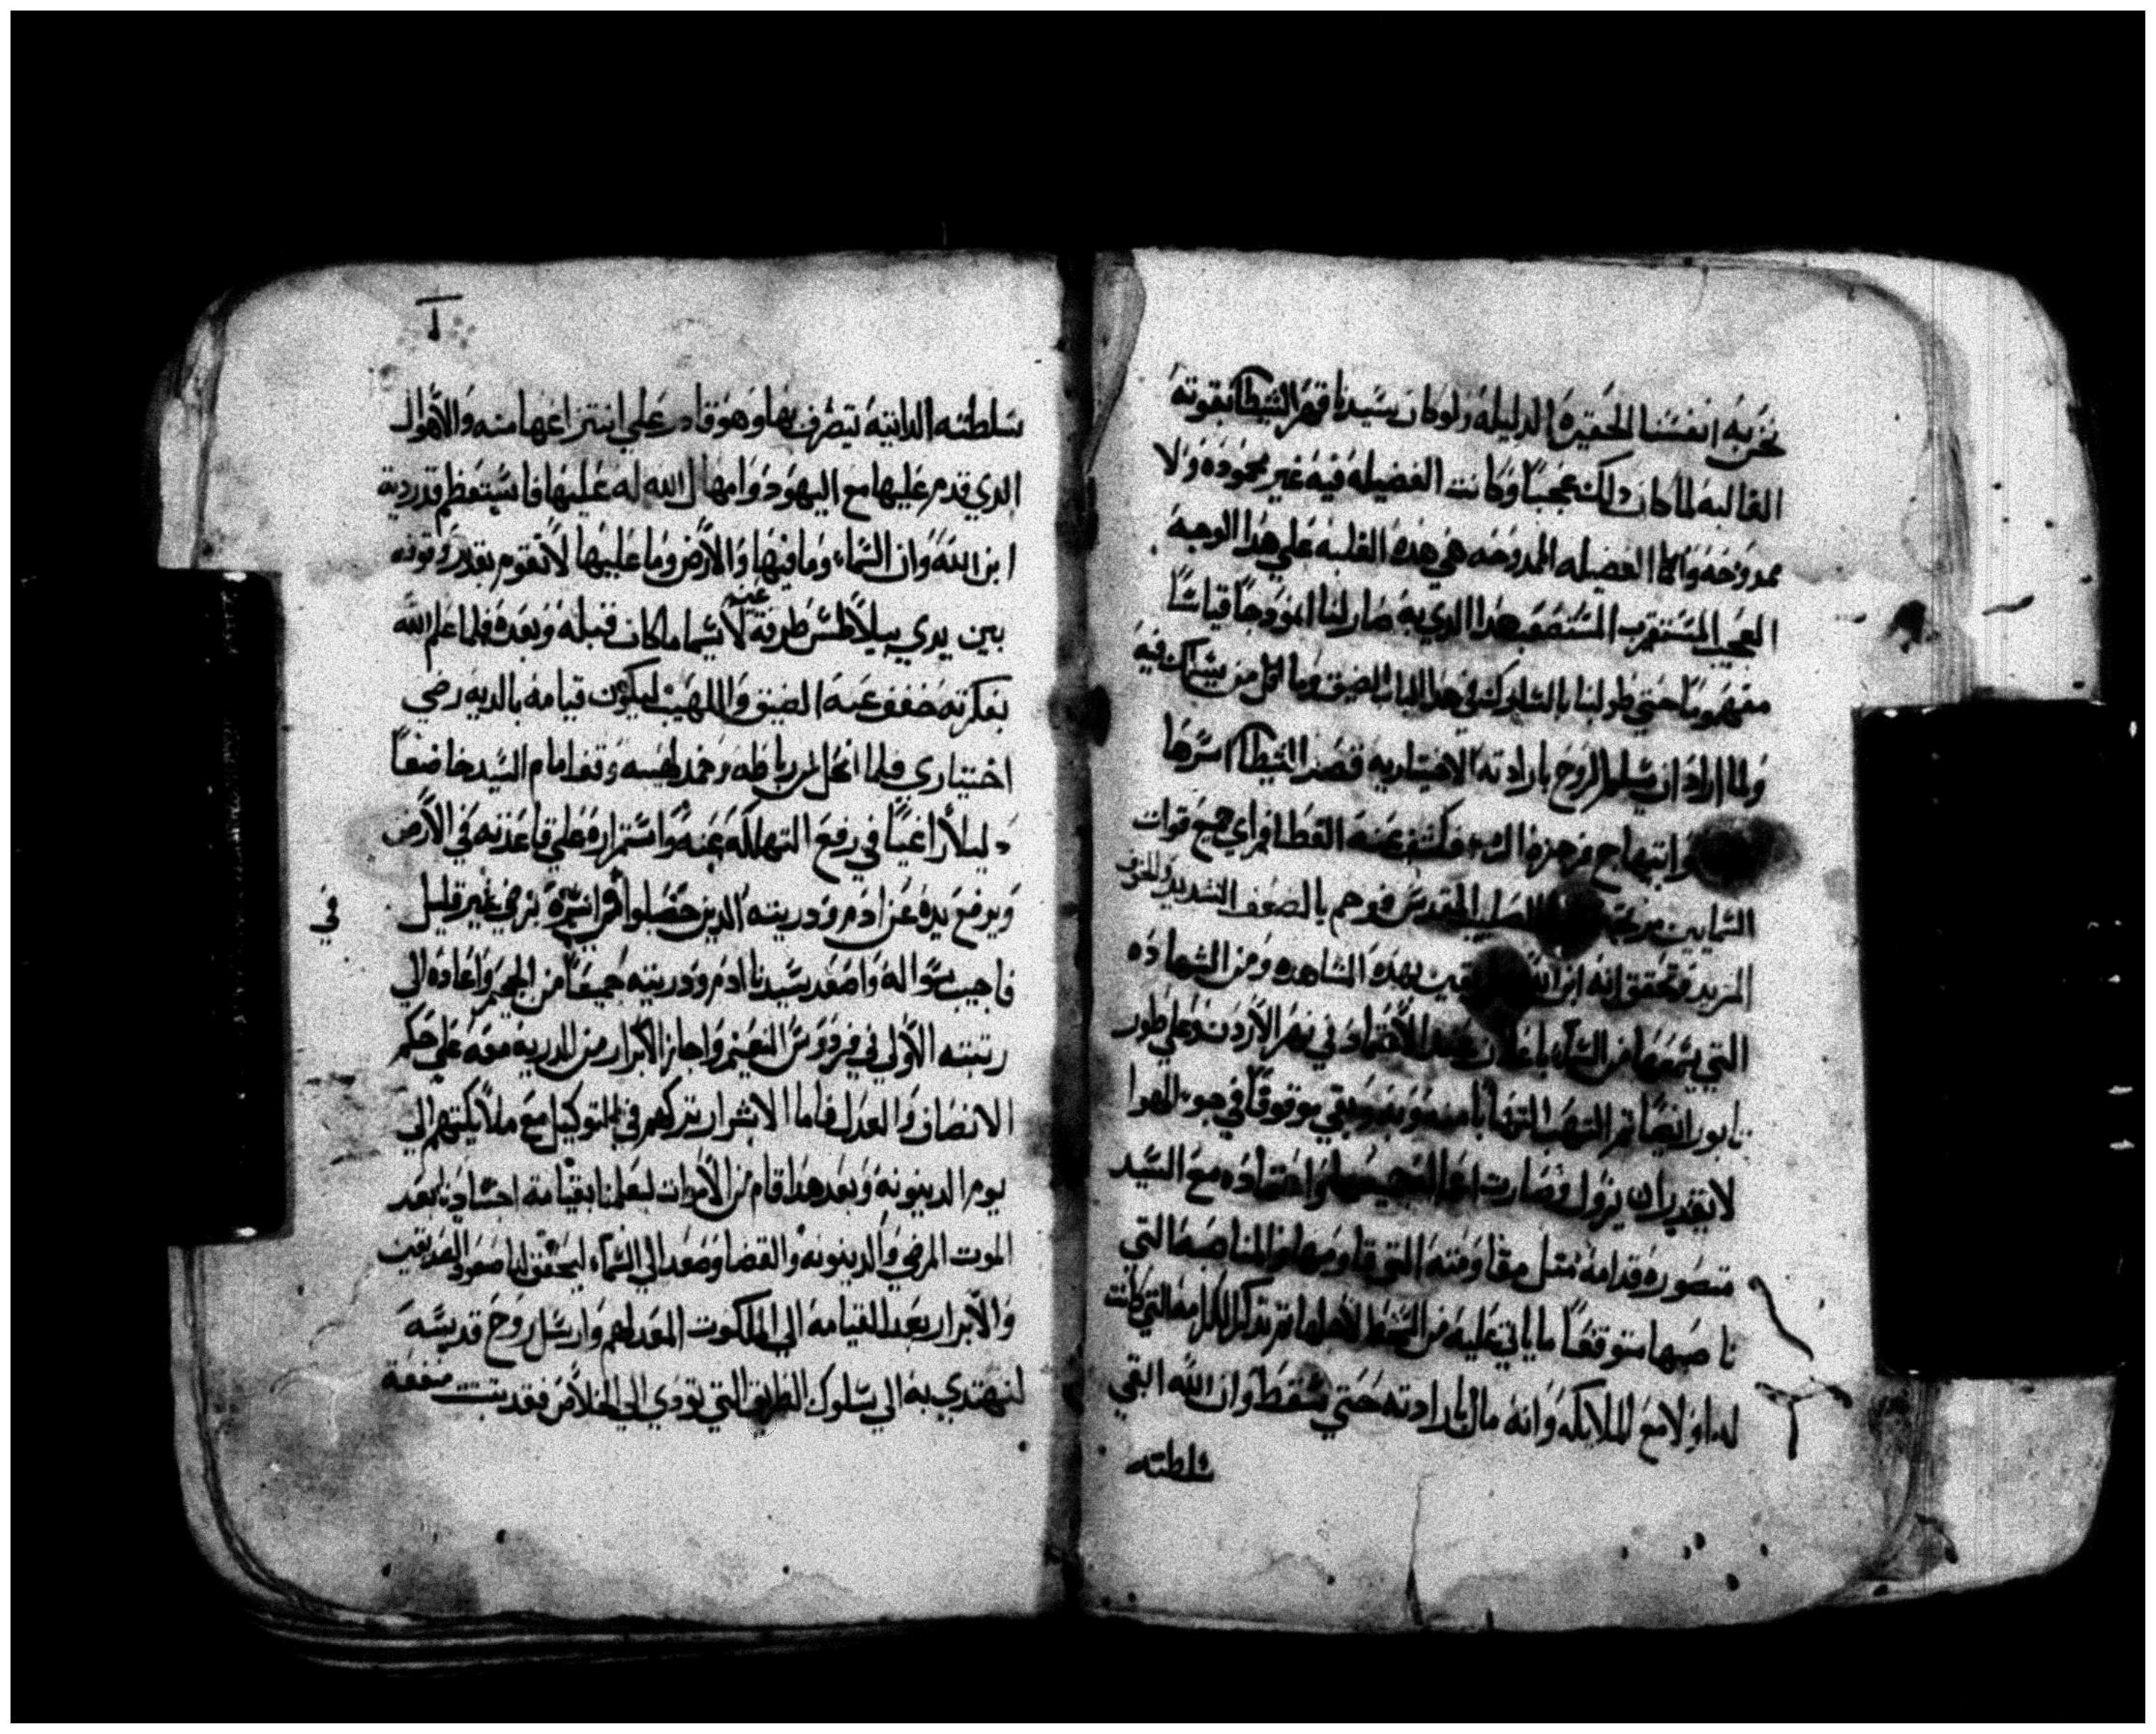 نحن به انفسنا الحقيره الدليله ولو كان سيدنا قهر الشيطان بقوته
الغالبه لما كان دلك عجبًا وكانت الفضيله فيه غير محموده ولا
ممدوحه وانما الفضيله الممدوحه هي هده الغلبه علي هدا الوجه
العجيب المستغرب المستصعب هدا الدي به صار لنا انمودجًا قياسًا
مفهومًا حتي طولبنا بالسلوك في هدا الباب الضيق وما اقل من يسلك فيه
ولما اراد ان يسلم الروح بارادته الاختياريه قصد الشيطان اسرها
وابتهاج فكشف عنه الغطا فراي جميع قوات
السمايين الصليب المقدس فوهم بالضعف الشديد والخزي
المزيد وتحقق انه ابن الله بهده المشاهده ومن الشهاده
التي سمعها من السماء الاعتماد في نهر الاردن وعلي طور
تابور ايضًا ثم التهب وبقي موقوفًا في جو الهوا
لا يقدر ان يزول وصارت مع السيد
متصوره قدامه مثل مقاومته التي قاومها والمناصبه التي
ناصبها متوقعًا ما ياتي عليه من السخط لاجلها ثم تدكر الكرامه التي كانت
له اولا مع الملايكه وانه مال بارادته حتي سقط وان الله ابقي
سلطته
سلطته الداتيه يتصرف بها وهو قادر علي انتزاعها منه والاهوال
الدي قدم عليها مع اليهود وامهال الله له عليها فاستعظم قدرة
ابن الله وان السماء وما فيها والارض وما عليها لا تقوم بقدر وقوفه
بين يدي بيلاطس طرفة عين لا سيما ما كان قبله وبعده فلما علم الله
بفكرته خفف عنه الضيق واللهيب ليكون قيامه بالديه رضي
اختياري فلما انحل من رباطه وخمد لهيبه وقف امام السيد خاضعًا
دليلاً راغبًا في رفع التهلكه عنه واستمراره علي قاعدته في الارض
ويرفع يده عن ادم ودريته الدين حصلوا في اسره بزمن غير قليل
في
فاجيب سواله واصعد سيدنا ادم ودريته جميعًا من الجحيم واعاده الي
رتبته الاولي في فردوس النعيم واجاز الابرار من الدريه معه علي حكم
الانصاف والعدل فاما الاشرار تركهم في التوكيل مع ملايكتهم الي
يوم الدينونه وبعد هدا قام من الاموات ليعلمنا بقيامة اجسادنا بعد
الموت المرضي والدينونه والقضا وصعد الي السماء ليحقق لنا صعود الصديقين
والابرار بعد القيامه الي الملكوت المعد لهم وارسل روح قدسه
لنهتدي به الي سلوك الطريق التي تودي الي الخلاص فقد ثبتت منفعة